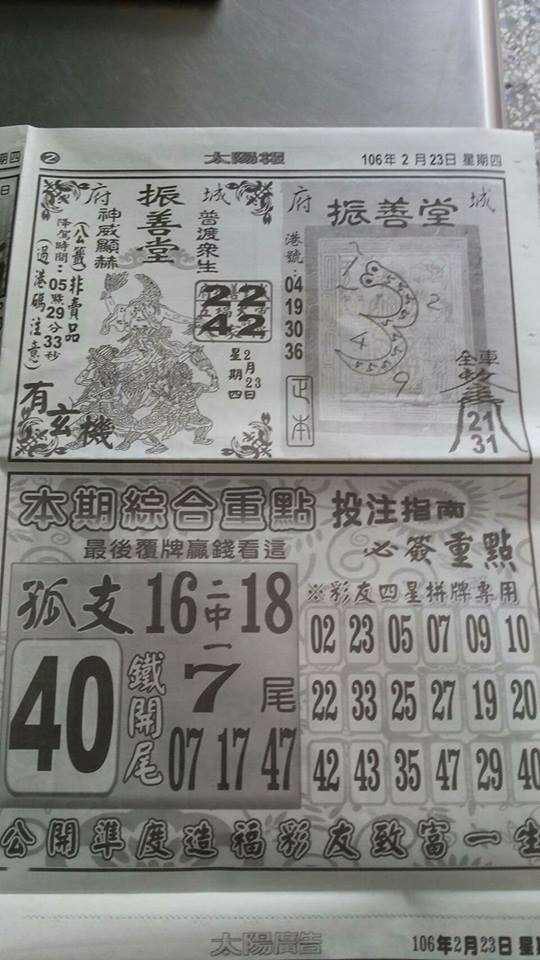 期四
日
2 太陽報 106年2月23日 星期四
府 振善堂 城
神威顯赫 普渡眾生
(八公籤)非賣品
降駕時間:05點29分33秒
(過港碼注意)
有玄機
22
42
2月23日
星期四
府 振善堂 城
港號:04 19 30 36
正本
2
4
9
全車
21
31
本期綜合重點 投注指南
最後覆牌贏錢看這 必簽重點
孤支 16 二中一 18
40
鐵開尾 7尾
07 17 47
※彩友四星拼牌專用
02 23 05 07 09 10
22 33 25 27 19 20
42 43 35 47 29 40
公開準度造福彩友致富一生
太陽廣告 106年2月23日 星